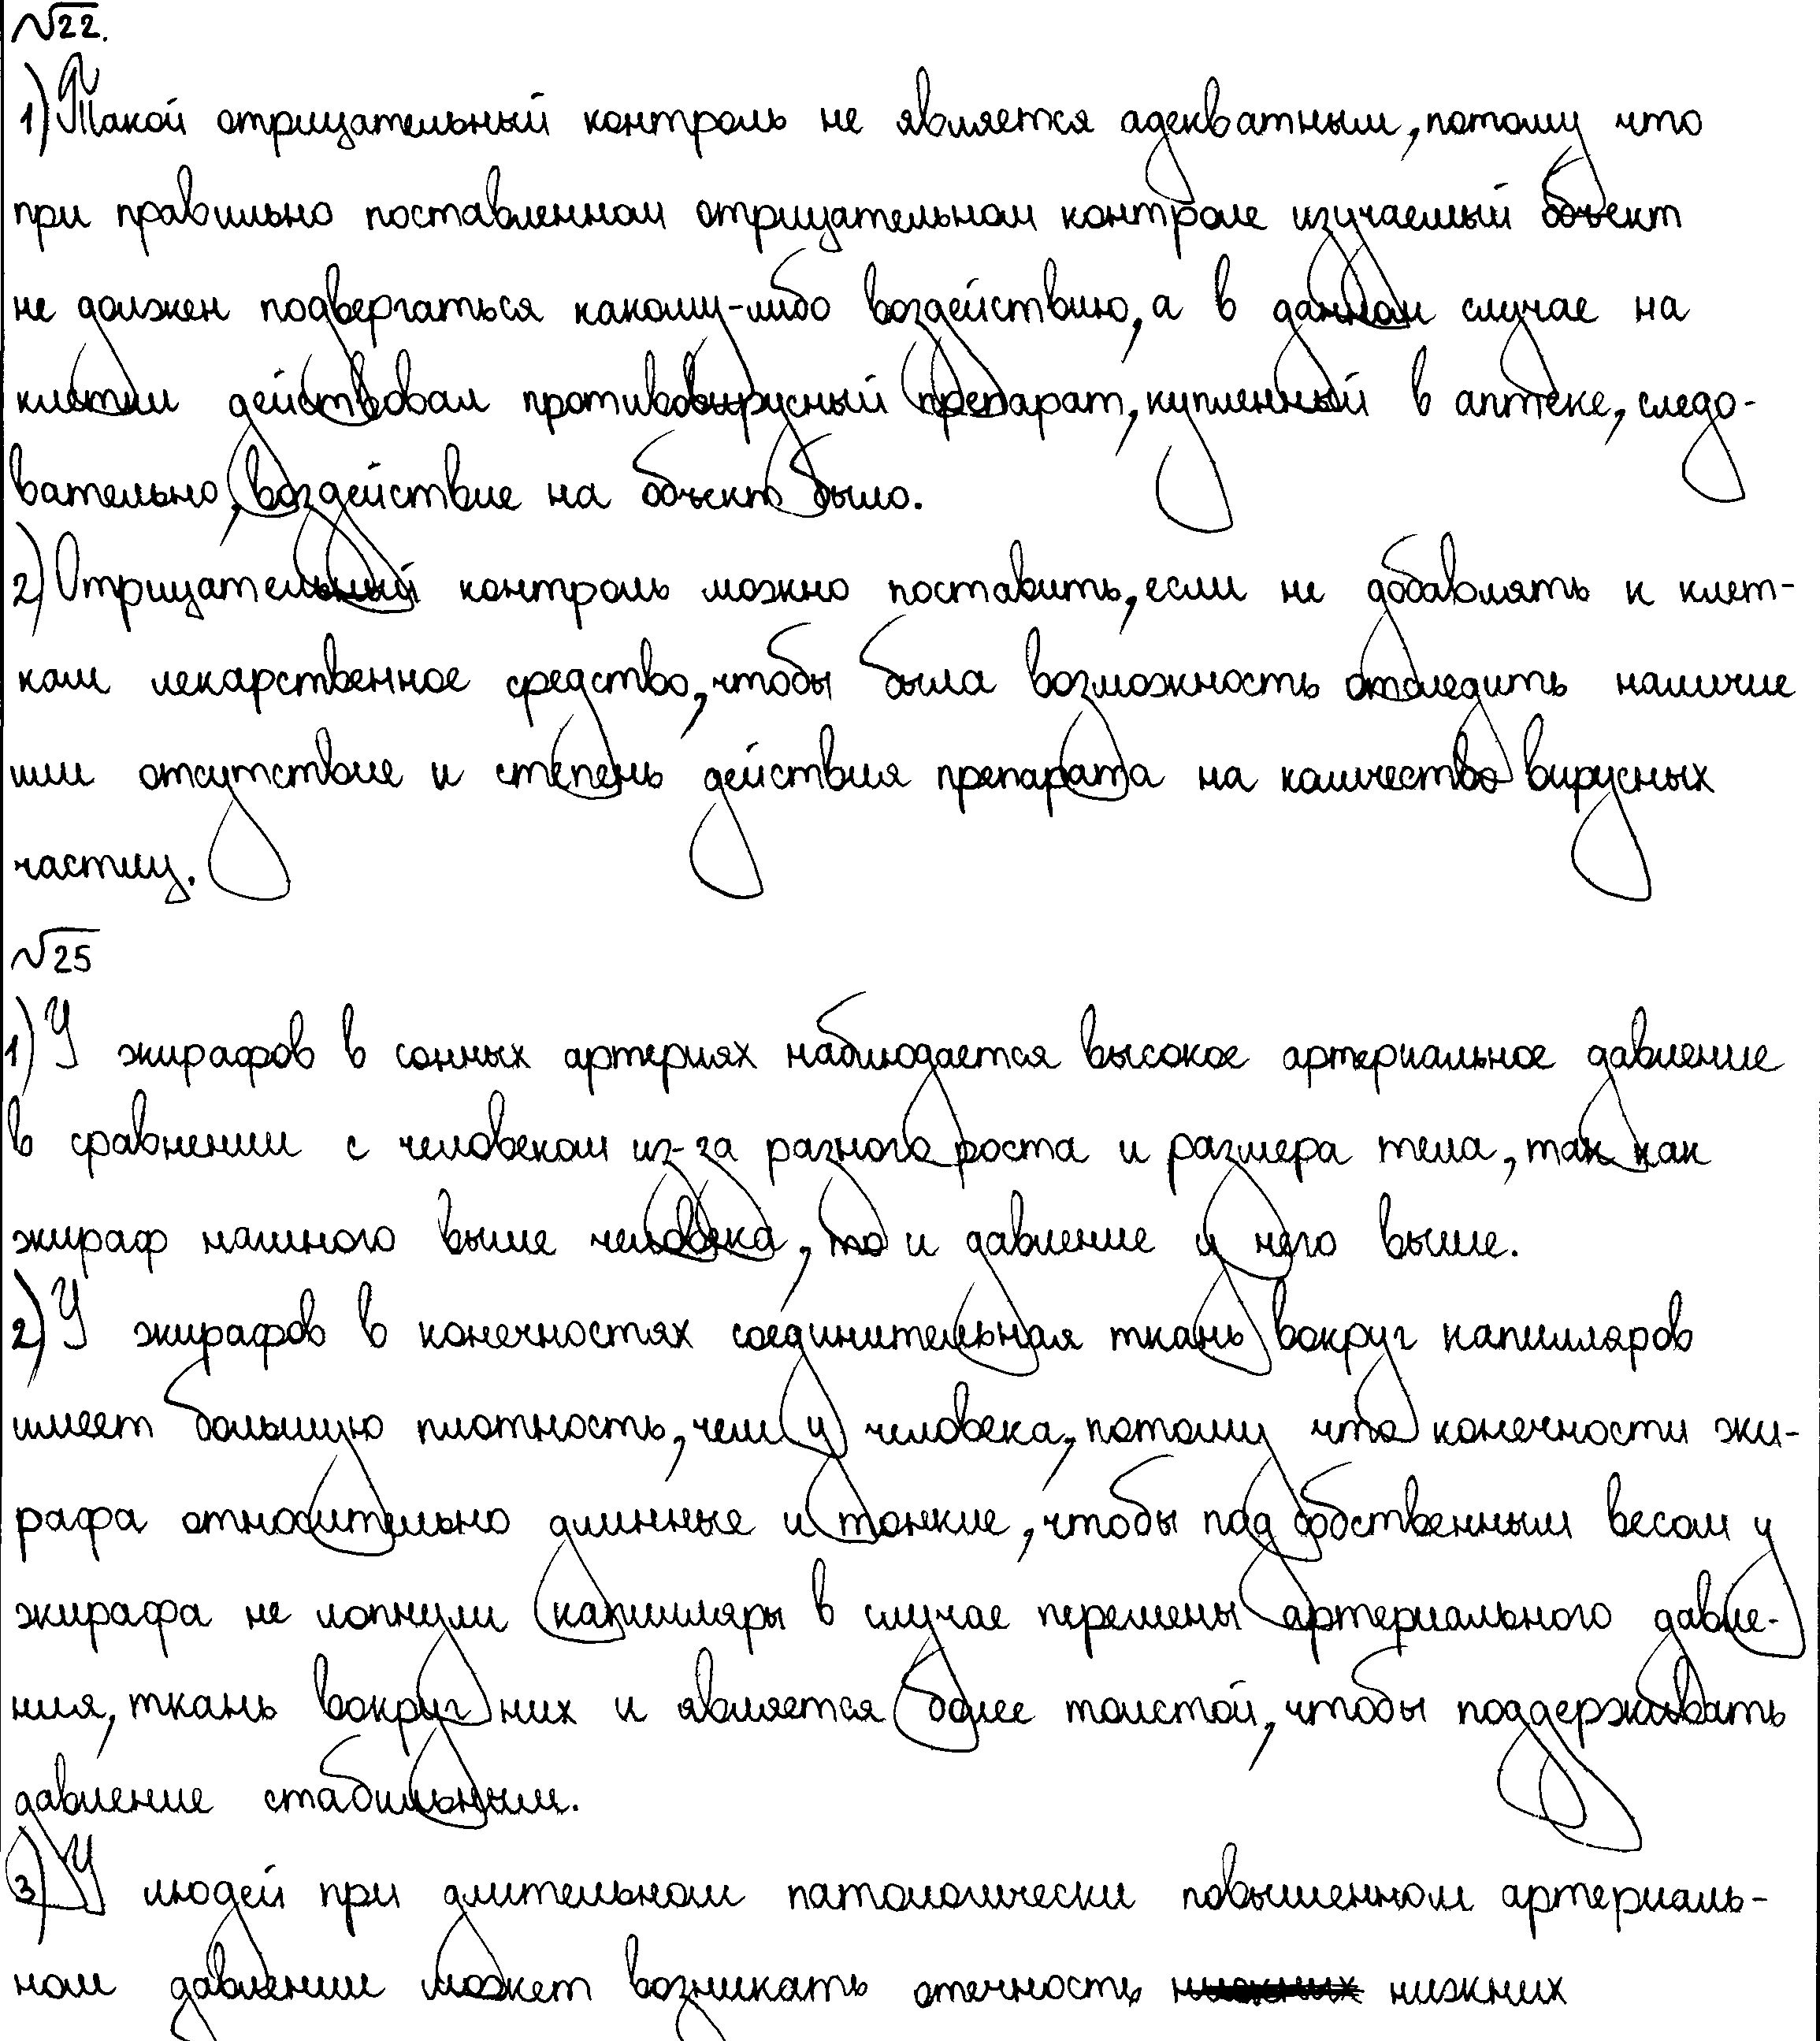 √22.
1) Такой отрицательный контроль не является адекватным, потому что
при правильно поставленном отрицательном контроле изучаемый объект
не должен подвергаться какому-либо воздействию, а в данном случае на
клетки действовал противовирусный препарат, купленный в аптеке, следо-
вательно, воздействие на объект было.
2) Отрицательный контроль можно поставить, если не добавлять к клет-
кам лекарственное средство, чтобы была возможность отследить наличие
или отсутствие и степень действия препарата на количество вирусных
частиц.
√25
1) У жирафов в сонных артериях наблюдается высокое артериальное давление
в сравнении с человеком из-за разного роста и размера тела, так как
жираф намного выше человека, то и давление у него выше.
2) У жирафов в конечностях соединительная ткань вокруг капилляров
имеет большую плотность, чем у человека, потому что конечности жи-
рафа относительно длинные и тонкие, чтобы под собственным весом у
жирафа не лопнули капилляры в случае перемены артериального давле-
ния, ткань вокруг них и является более толстой, чтобы поддерживать
давление стабильным.
3) У людей при длительном патологически повышенном артериаль-
ном давлении может возникать отечность нижних